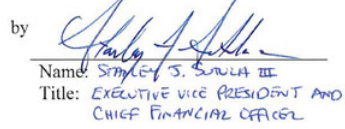 by
Name: STANLEY J. SUTULA III
Title: EXECUTIVE VICE PRESIDENT AND
CHIEF FINANCIAL OFFICER